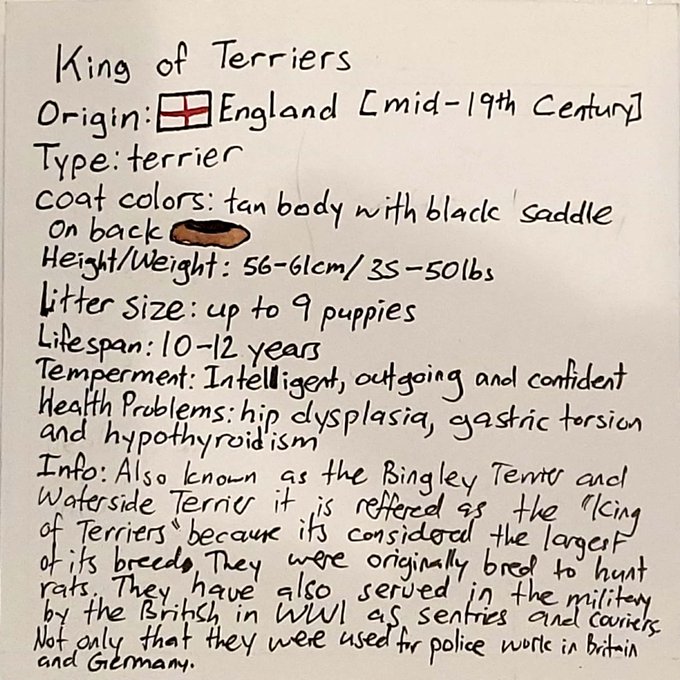 King of Terriers
Origin: England [mid-19th Century]
Type: terrier
coat colors: tan body with black saddle
on back
Height/Weight: 56-61cm/35-50lbs
Litter size: up to 9 puppies
Lifespan: 10-12 years
Temperment: Intelligent, outgoing and confident
Health Problems: hip dysplasia, gastric torsion
and hypothyroidism
Info: Also known as the Bingley Terrier and
Waterside Terrier it is reffered as the "King
of Terriers" because its considered the largest
of its breeds, They were originally bred to hunt
rats. They have also served in the military
by the British in WW1 as sentries and couriers.
Not only that they were used for police work in Britain
and Germany.